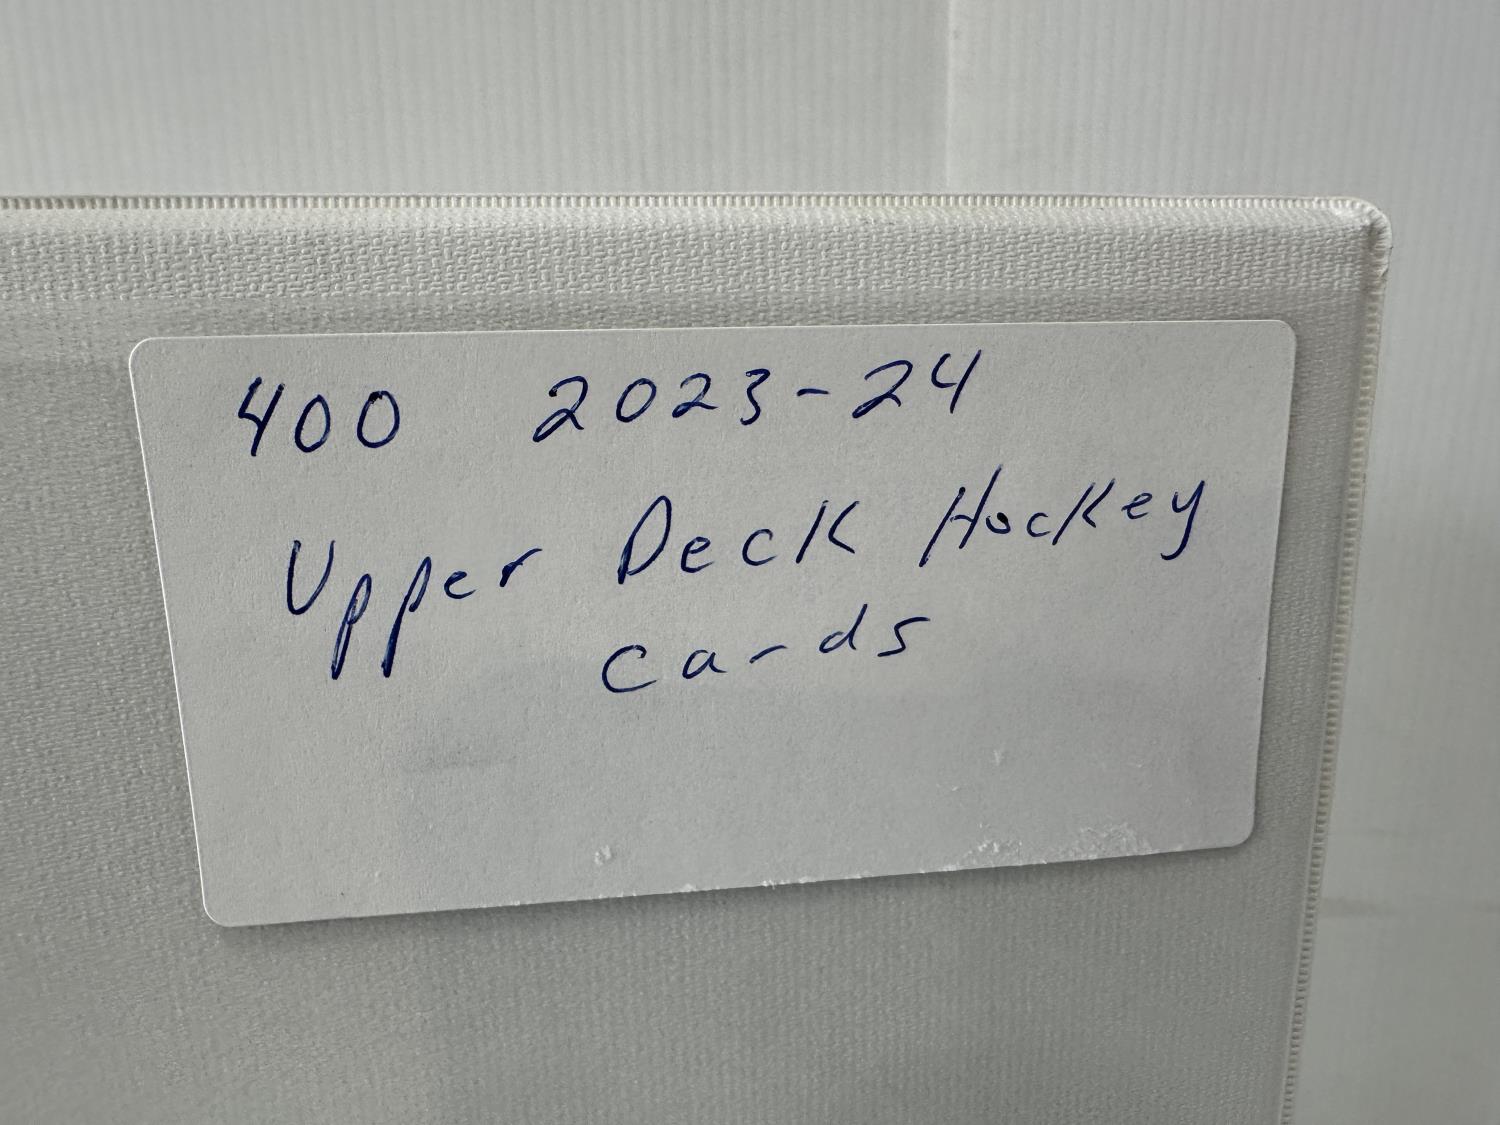 400 2023-24
Upper Deck Hockey
cards